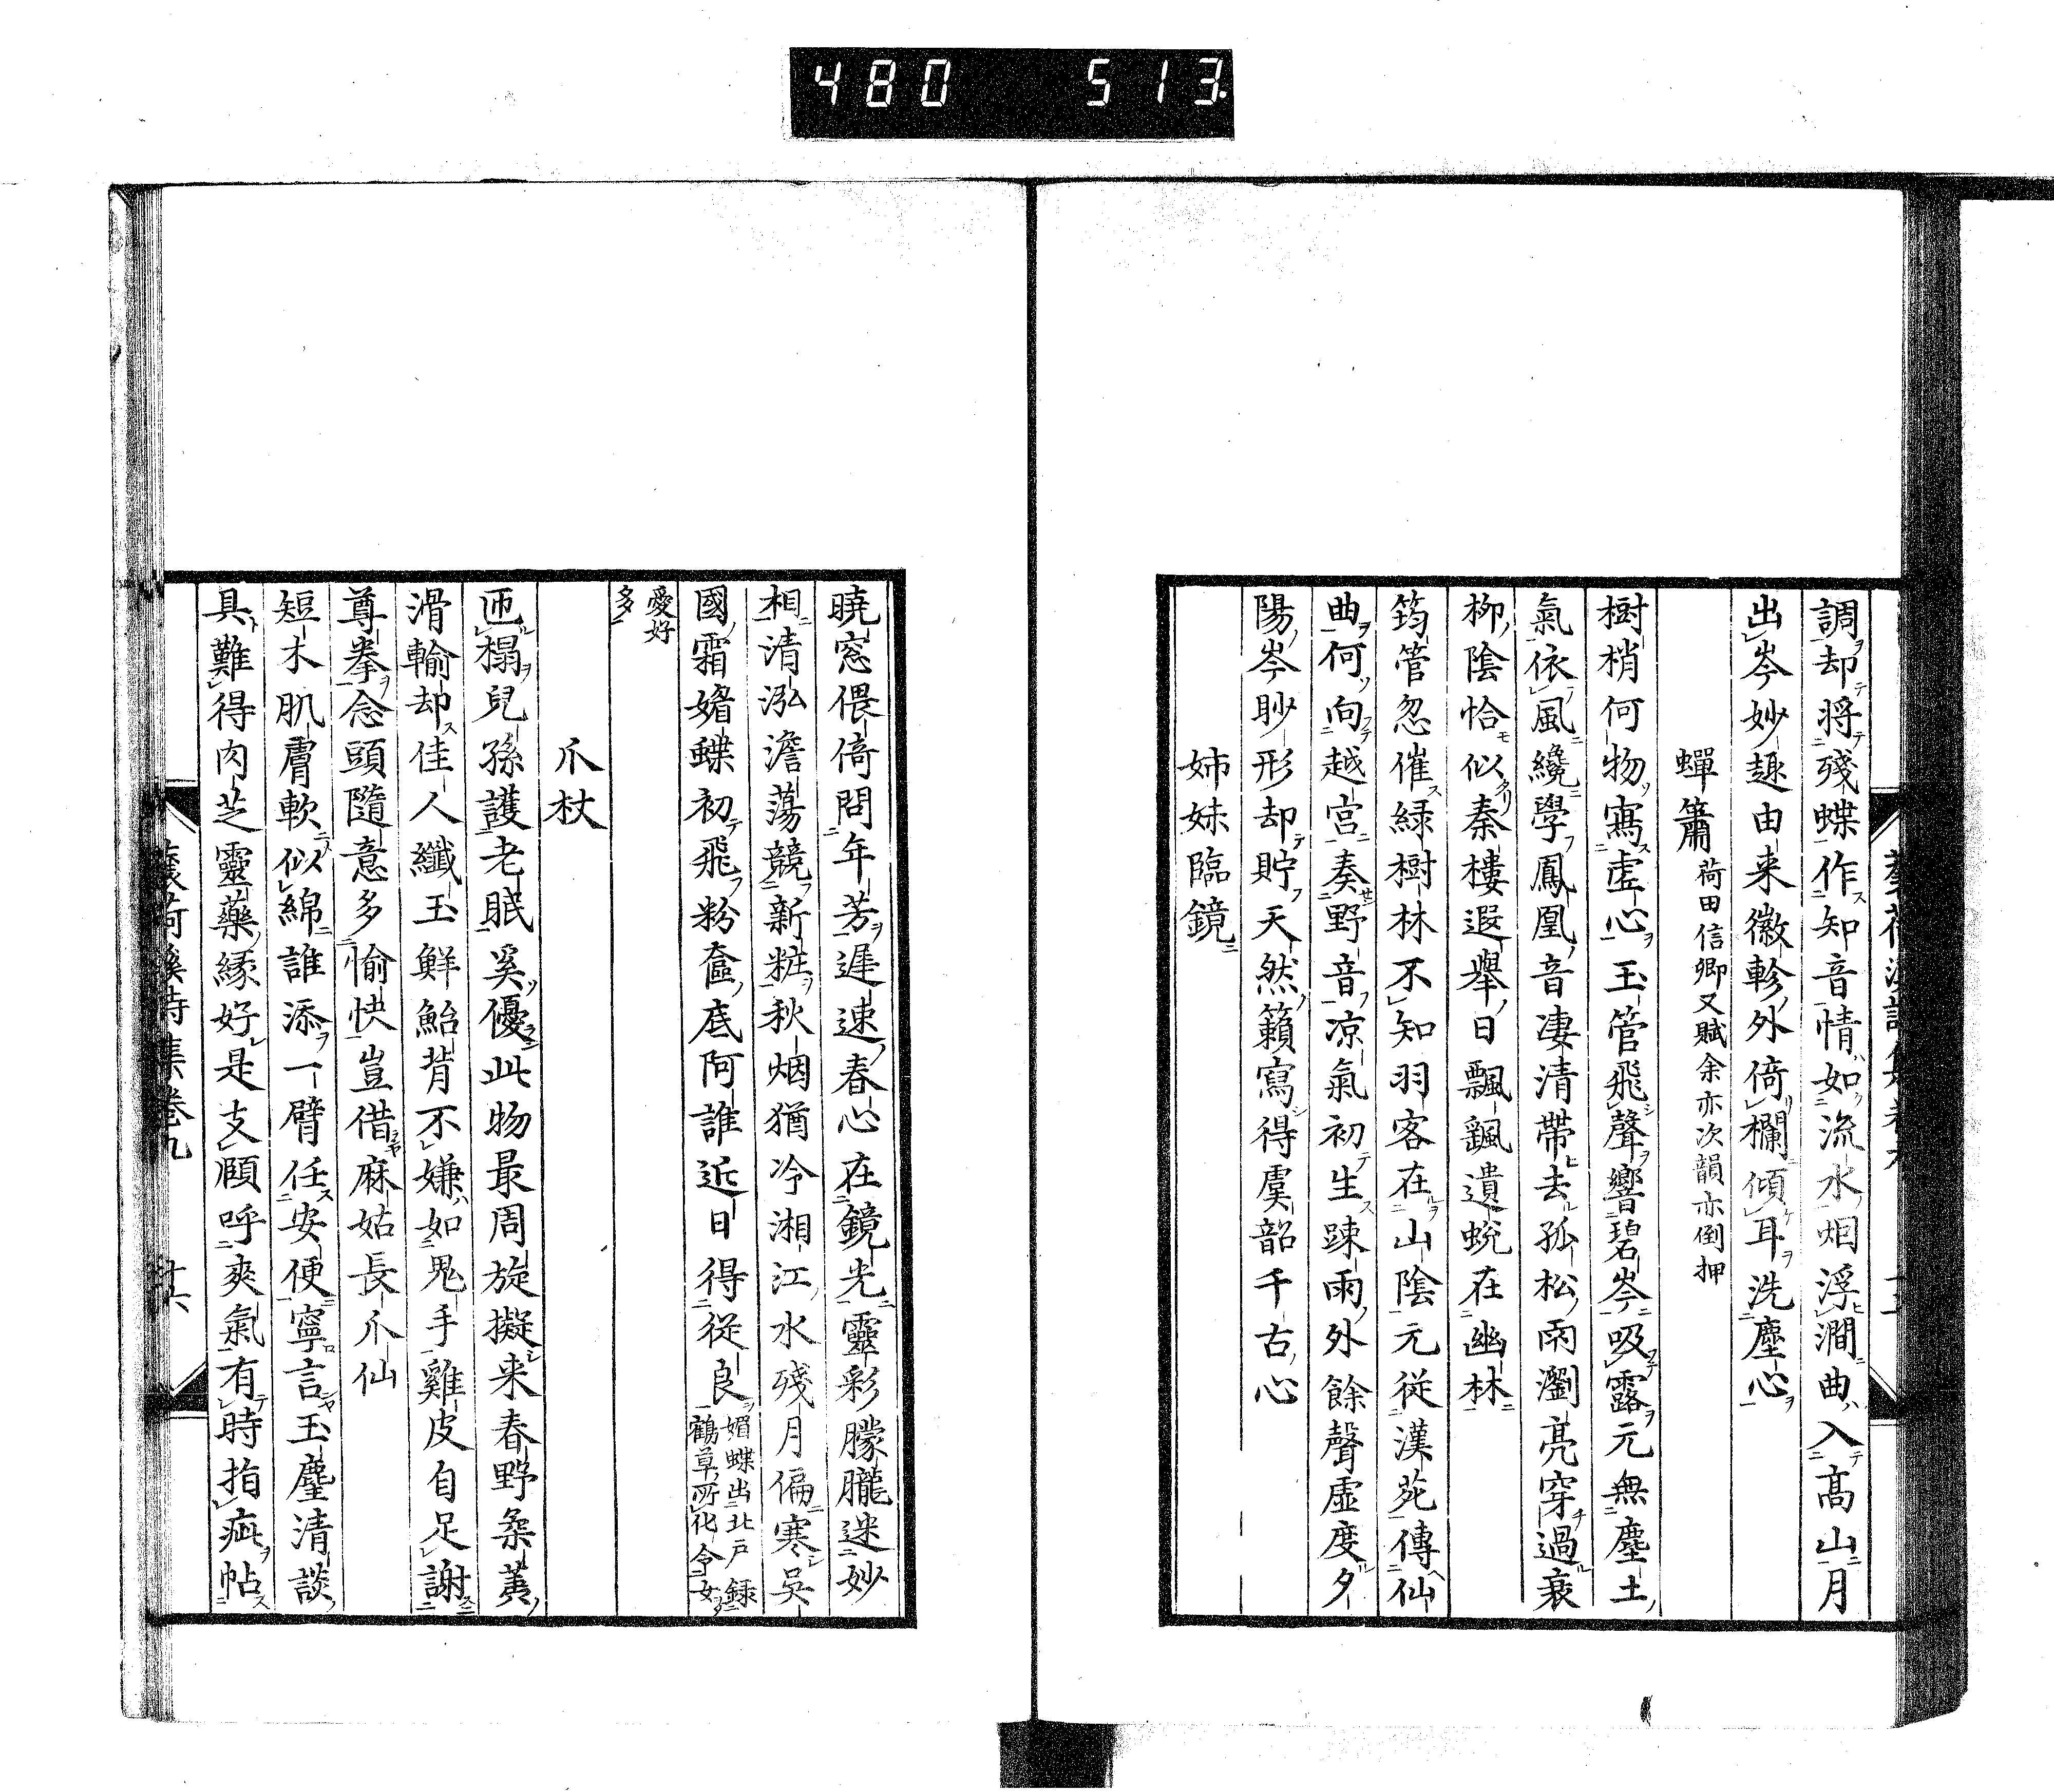 480 513.
調却將殘蝶作知音情如流水烟浮澗曲入高山月
出岑妙趣由来徽軫外倚欄傾耳洗塵心
蟬簫 荷田信卿又賦余亦次韻亦倒押
樹梢何物寫虛心玉管飛聲響碧岑吸露元無塵土
氣依風纔學鳳凰音淒清帶去孤松雨瀏亮穿過衰
柳陰恰似秦樓遐舉日飄飄遺蛻在幽林
筠管忽催緑樹林不知羽客在山陰元從漢苑傳仙
曲何向越宮奏野音凉氣初生踈雨外餘聲虛度夕
陽岑眇形却貯天然籟寫得虞韶千古心
姉妹臨鏡
曉窓偎倚問年芳遲速春心在鏡光靈彩朦朧迷妙
相清泓澹蕩競新粧秋烟猶冷湘江水殘月偏寒吳
國霜媚蝶初飛粉奩底阿誰近日得從良 媚蝶出北戸録
鶴草所化令女
愛好
多多
爪杖
匝榻兒孫護老眠奚優此物最周旋擬来春野桑荑
滑輸却佳人纖玉鮮鮐背不嫌如鬼手雞皮自足謝
尊拳念頭隨意多愉快豈借麻姑長爪仙
短木肌膚軟似綿誰添一臂任安便寧言玉麈清談
具難得肉芝靈藥緣好是支頤呼爽氣有時指疵帖
蘘荷溪詩集卷九 十六